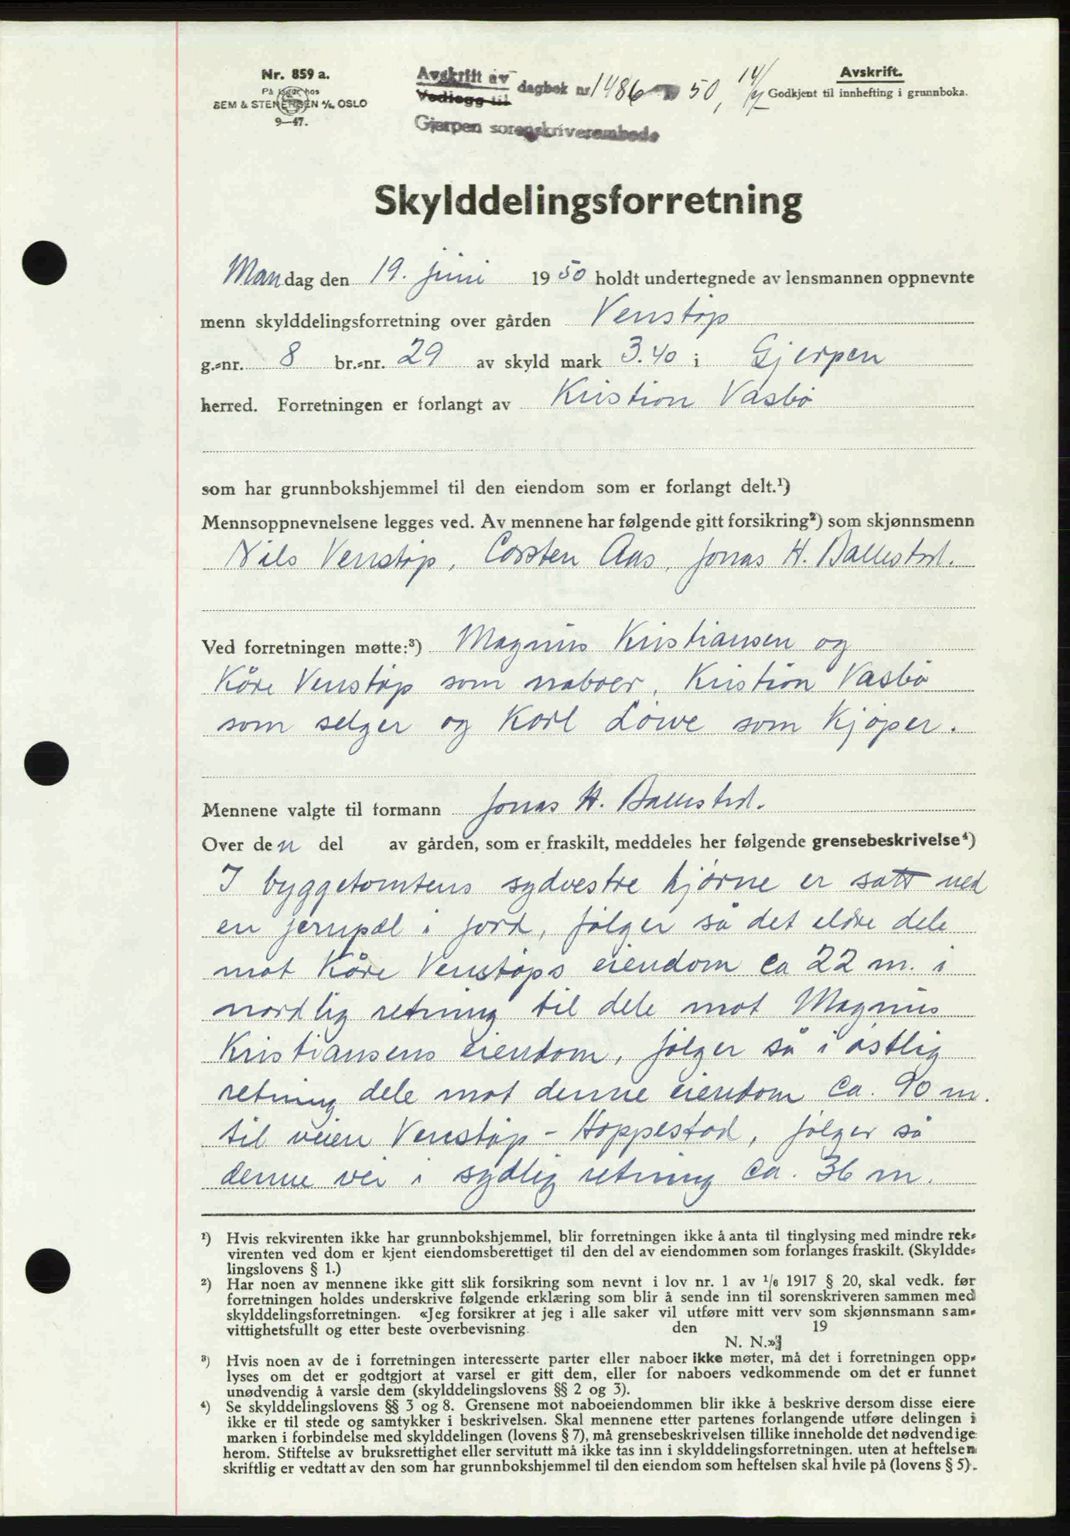 Nr. 859 a.
På lager hos
SEM & STENERSEN A/S, OSLO
9—47.
Avskrift av
Vedlegg til
dagbok nr 1486 50, 14/7
Gjerpen sorenskriverembede
Avskrift.
Godkjent til innhefting i grunnboka.
Skylddelingsforretning
Mandag den 19. juni 1950 holdt undertegnede av lensmannen oppnevnte
menn skylddelingsforretning over gården Venstøp
g.-nr. 8 br.-nr. 29 av skyld mark 3.40 i Gjerpen
herred. Forretningen er forlangt av Kristian Vasbø
som har grunnbokshjemmel til den eiendom som er forlangt delt.¹)
Mennsoppnevnelsene legges ved. Av mennene har følgende gitt forsikring²) som skjønnsmenn
Nils Venstøp, Carsten Aas, Jonas H. Ballestad.
Ved forretningen møtte:³) Magnus Kristiansen og
Kåre Venstøp som naboer, Kristian Vasbø
som selger og Karl Löwe som kjøper.
Mennene valgte til formann Jonas H. Ballestad.
Over den del av gården, som er fraskilt, meddeles her følgende grensebeskrivelse⁴)
I byggetomtens sydvestre hjørne er satt ned
en jernpæl i jord, følger så det eldre dele
mot Kåre Venstøps eiendom ca 22 m. i
nordlig retning til dele mot Magnus
Kristiansens eiendom, følger så i østlig
retning dele mot denne eiendom ca. 90 m.
til veien Venstøp - Hoppestad, følger så
denne vei i sydlig retning ca. 36 m.
¹) Hvis rekvirenten ikke har grunnbokshjemmel, blir forretningen ikke å anta til tinglysing med mindre rek-
virenten ved dom er kjent eiendomsberettiget til den del av eiendommen som forlanges fraskilt. (Skyldde-
lingslovens § 1.)
²) Har noen av mennene ikke gitt slik forsikring som nevnt i lov nr. 1 av 1/6 1917 § 20, skal vedk. før
forretningen holdes underskrive følgende erklæring som blir å sende inn til sorenskriveren sammen med
skylddelingsforretningen. «Jeg forsikrer at jeg i alle saker vil utføre mitt verv som skjønnsmann sam-
vittighetsfullt og etter beste overbevisning. den 19
N. N.»]
³) Hvis noen av de i forretningen interesserte parter eller naboer ikke møter, må det i forretningen opp-
lyses om det er godtgjort at varsel er gitt dem, eller for naboers vedkommende om det er funnet
unødvendig å varsle dem (skylddelingslovens §§ 2 og 3).
⁴) Se skylddelingslovens §§ 3 og 8. Grensene mot naboeiendommen blir ikke å beskrive dersom disse eiere
ikke er til stede og samtykker i beskrivelsen. Skal mennene etter partenes forlangende utføre delingen i
marken i forbindelse med skylddelingen (lovens § 7), må grensebeskrivelsen tillike inneholde det nødvendige
herom. Stiftelse av bruksrettighet eller servitutt må ikke tas inn i skylddelingsforretningen. uten at heftelsen
skriftlig er vedtatt av den som har grunnbokshjemmel til den eiendom som heftelsen skal hvile på (lovens § 5).